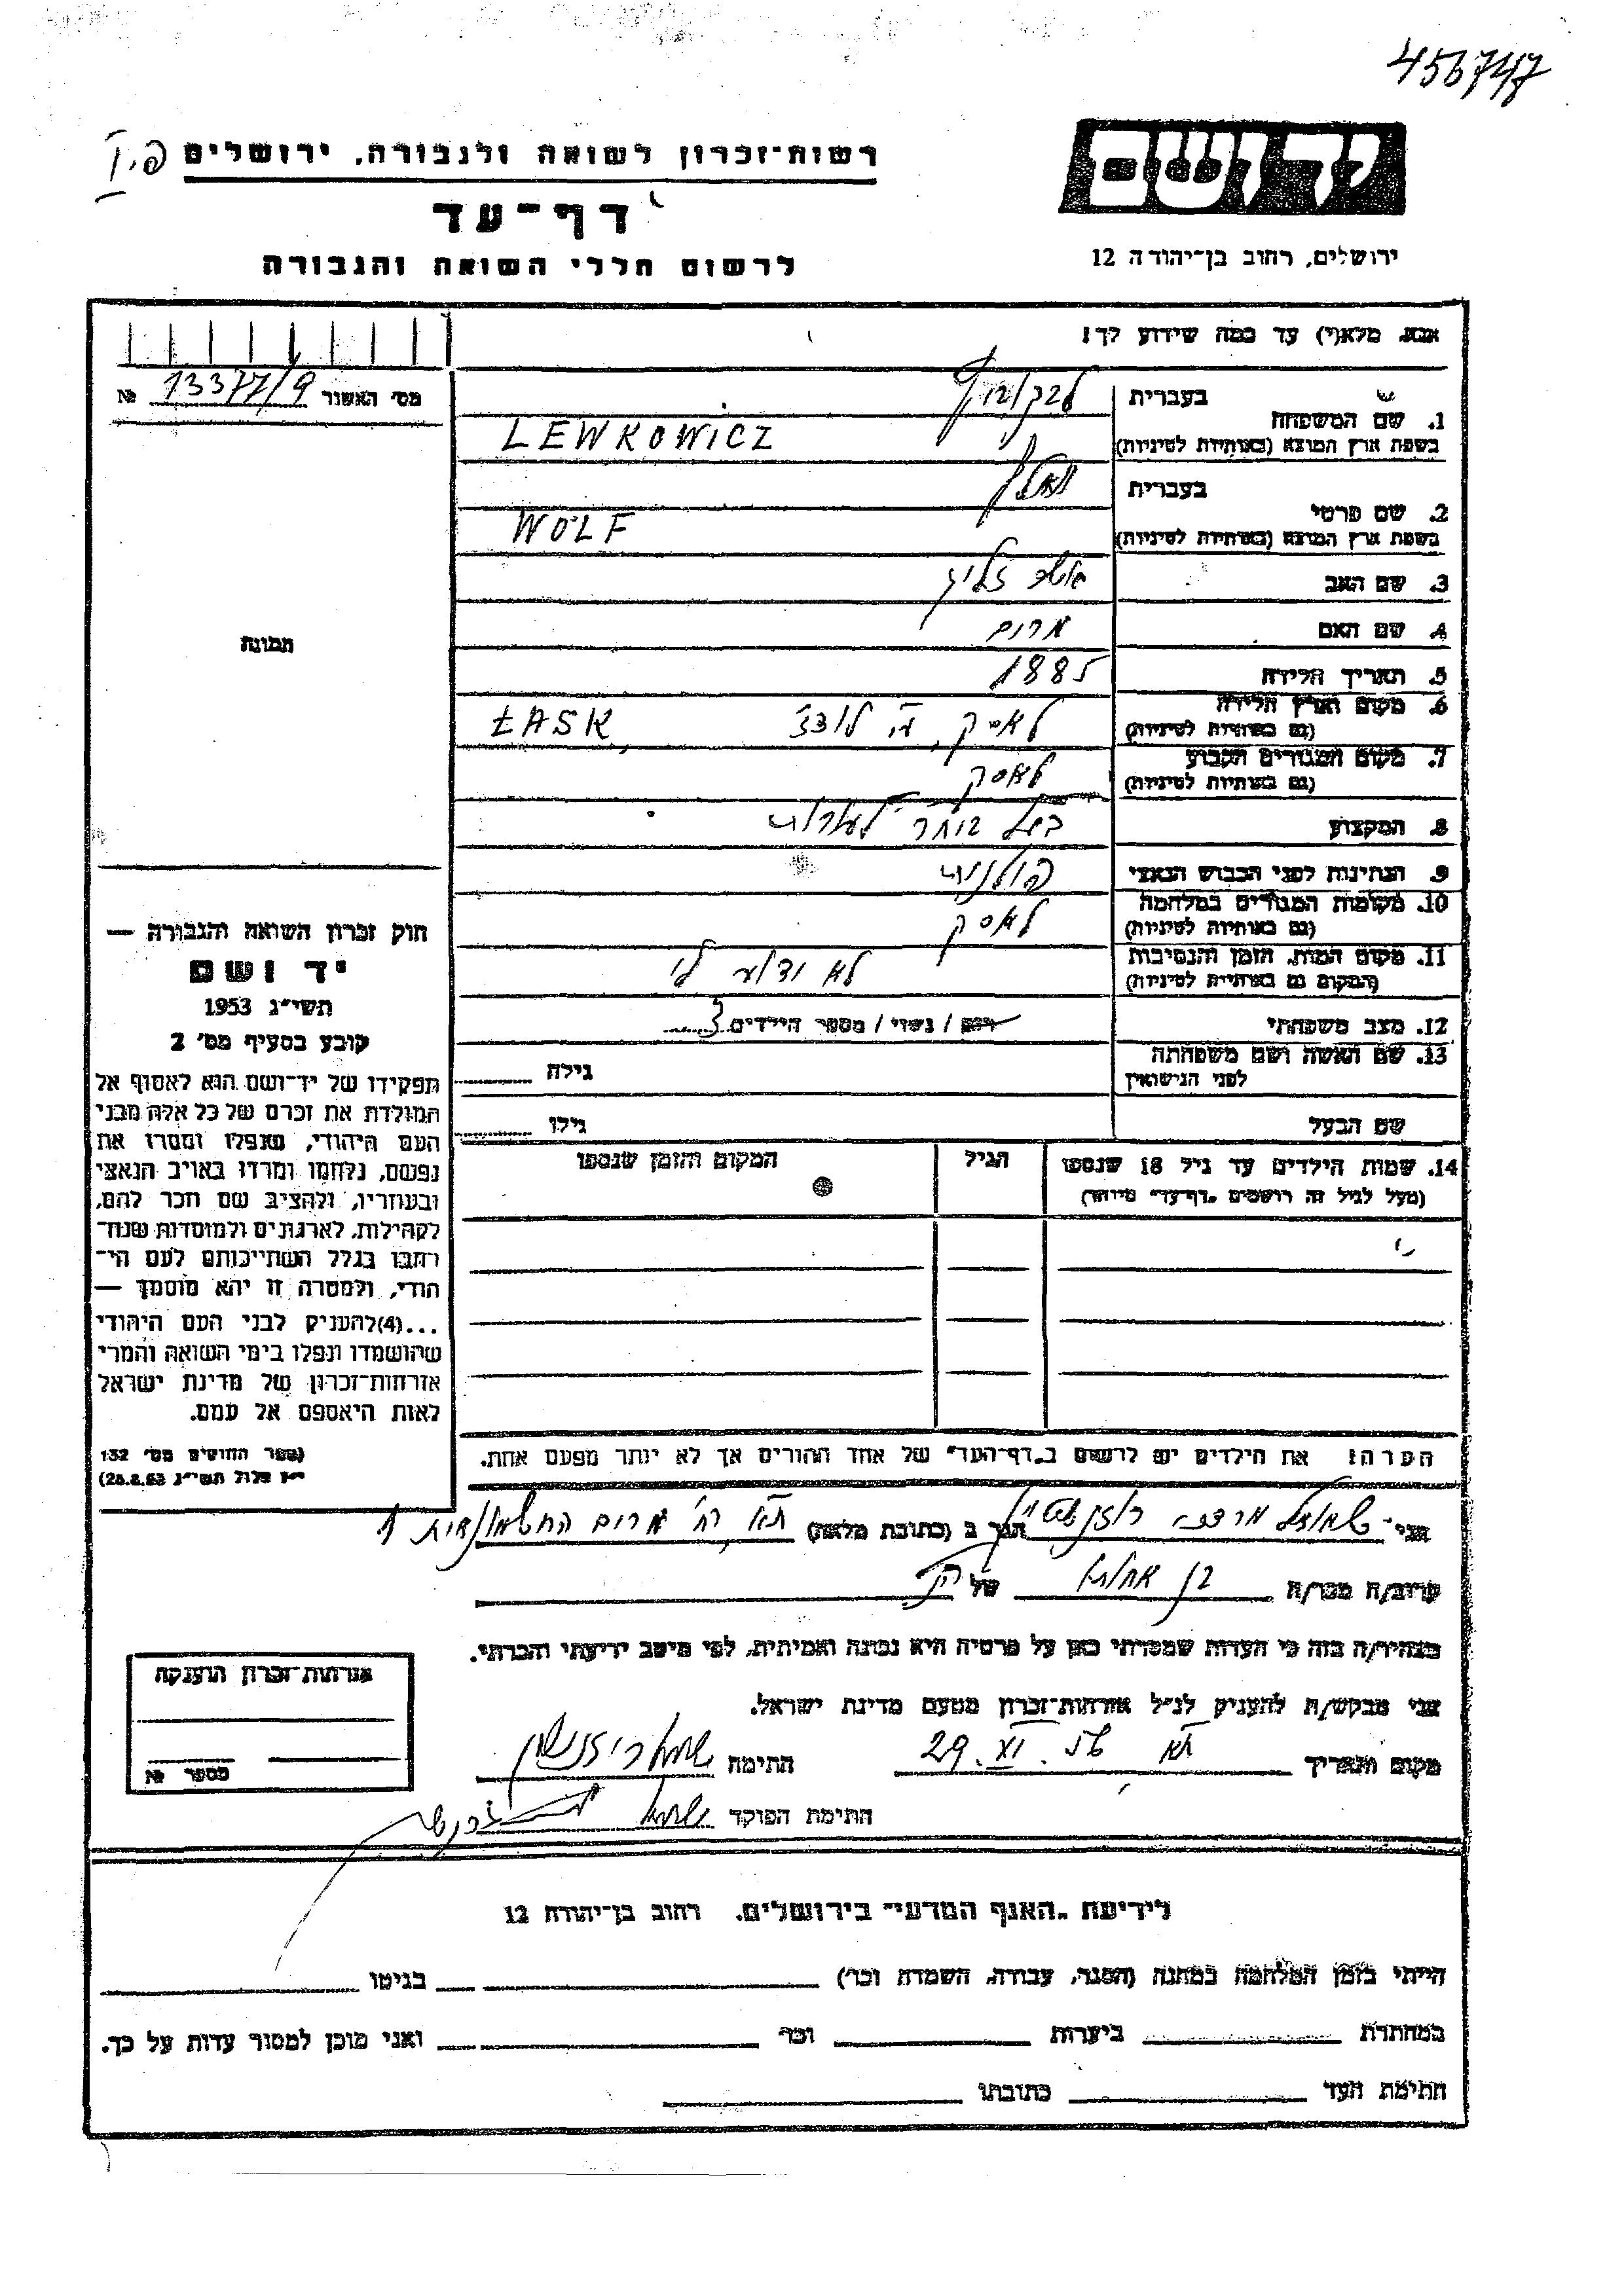 456747
רשות־זכרון לשואה ולגבורה, ירושלים
ידושם
דף־עד
ירושלים, רחוב בן־יהודה 12
לרשום חללי השואה והגבורה
אנא, מלא(י) עד כמה שידוע לך!
מס׳ האשור 13377/9 №
1. שם המשפחה
בעברית
בשפת ארץ המוצא (באותיות לטיניות) LEWKOWICZ
2. שם פרטי
בעברית
בשפת ארץ המוצא (באותיות לטיניות) WOLF
3. שם האב
4. שם האם מרים
5. תאריך הלידה 1885
6. מקום וארץ הלידה
(גם באותיות לטיניות) לאסק, לודז׳ ŁASK,
7. מקום המגורים הקבוע
(גם באותיות לטיניות) לאסק
8. המקצוע
9. הנתינות לפני הכבוש הנאצי פולנית
10. מקומות המגורים במלחמה
(גם באותיות לטיניות) לאסק
11. מקום המות, הזמן והנסיבות
(המקום גם באותיות לטיניות) לא ידוע לי
12. מצב משפחתי רווק / נשוי / מספר הילדים 3
13. שם האשה ושם משפחתה
לפני הנישואין
גילה
שם הבעל גילו
14. שמות הילדים עד גיל 18 שנספו
(מעל לגיל זה רושמים „דף־עד” מיוחד)
הגיל
המקום והזמן שנספו
הערה: את הילדים יש לרשום ב„דף־העד” של אחד ההורים אך לא יותר מפעם אחת.
תמונה
חוק זכרון השואה והגבורה —
יד ושם
תשי״ג 1953
קובע בסעיף מס׳ 2
תפקידו של יד־ושם הוא לאסוף אל
המולדת את זכרם של כל אלה מבני
העם היהודי, שנפלו ומסרו את
נפשם, נלחמו ומרדו באויב הנאצי
ובעוזריו, ולהציב שם וזכר להם,
לקהילות, לארגונים ולמוסדות שנח־
רבו בגלל השתייכותם לעם הי־
הודי, ולמטרה זו יהא מוסמך —
...(4) להעניק לבני העם היהודי
שהושמדו ונפלו בימי השואה והמרי
אזרחות־זכרון של מדינת ישראל
לאות היאספם אל עמם.
(ספר החוקים מס׳ 132
י״ז אלול תשי״ג 28.8.53)
אני שמואל מרדכי רוזנשטיין הגר ב (כתובת מלאה) ת״א, רח׳ מרים החשמונאית
קרוב/ה מכר/ה בן אחות של הנ״ל
מצהיר/ה בזה כי העדות שמסרתי כאן על פרטיה היא נכונה ואמיתית, לפי מיטב ידיעתי והכרתי.
אני מבקש/ת להעניק לנ״ל אזרחות־זכרון מטעם מדינת ישראל.
אזרחות־זכרון הוענקה
מספר №
מקום ותאריך ת״א 29.XI. חתימה
חתימת הפוקד
לידיעת „האגף המדעי” בירושלים, רחוב בן־יהודה 12
הייתי בזמן המלחמה במחנה (הסגר, עבודה, השמדה וכו׳) בגיטו
במחתרת ביערות וכו׳ ואני מוכן למסור עדות על כך.
חתימת העד כתובתו